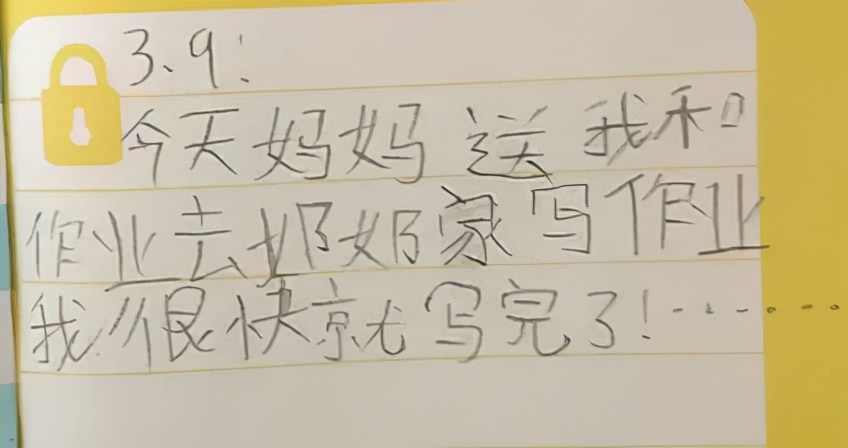 3、9！
今天妈妈送我和
作业去奶奶家写作业
我很快就写完了！·······